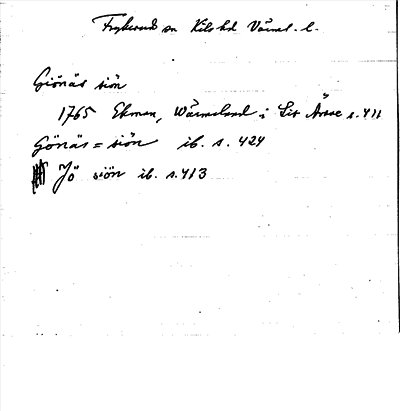 Frykerud sn Kils hd Värml. l.
Giönäs siön
1765 Ekman, Wärmeland i Sit Ämne s. 411
Gönäs=siön ib. s. 424
Jö siön ib. s. 413